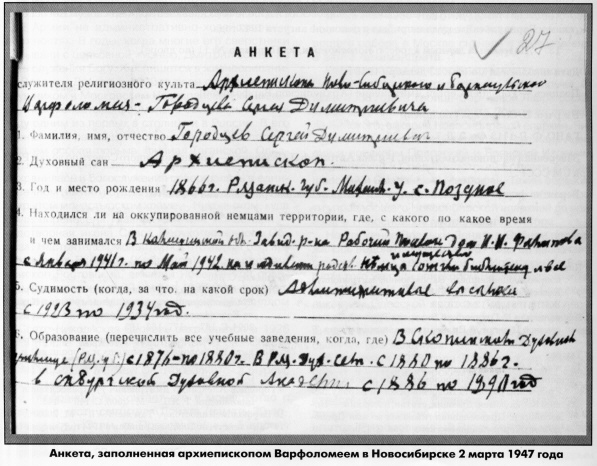 27
АНКЕТА
служителя религиозного культа Архиепископа Ново-Сибирского и Барнаульского
Варфоломея - Городцева Сергея Димитриевича
1. Фамилия, имя, отчество Городцев Сергей Димитриевич
2. Духовный сан Архиепископ.
3. Год и место рождения 1866 г. Рязанск. губ. Михайл. у. с. Поздное
4. Находился ли на оккупированной немцами территории, где, с какого по какое время
и чем занимался В Калининской обл. Завид. р-на Рабочий Поселок
с Января 1941 г. по Май 1942
5. Судимость (когда, за что, на какой срок) Административная высылка
с 1923 по 1934 год.
6. Образование (перечислить все учебные заведения, когда, где) В Скопинском Духовном
училище (Ряз. губ.) с 1876 по 1880 г. В Ряз. Дух. Сем. с 1880 по 1886 г.
в Духовной Академии, с 1886 по 1890 год
Анкета, заполненная архиепископом Варфоломеем в Новосибирске 2 марта 1947 года